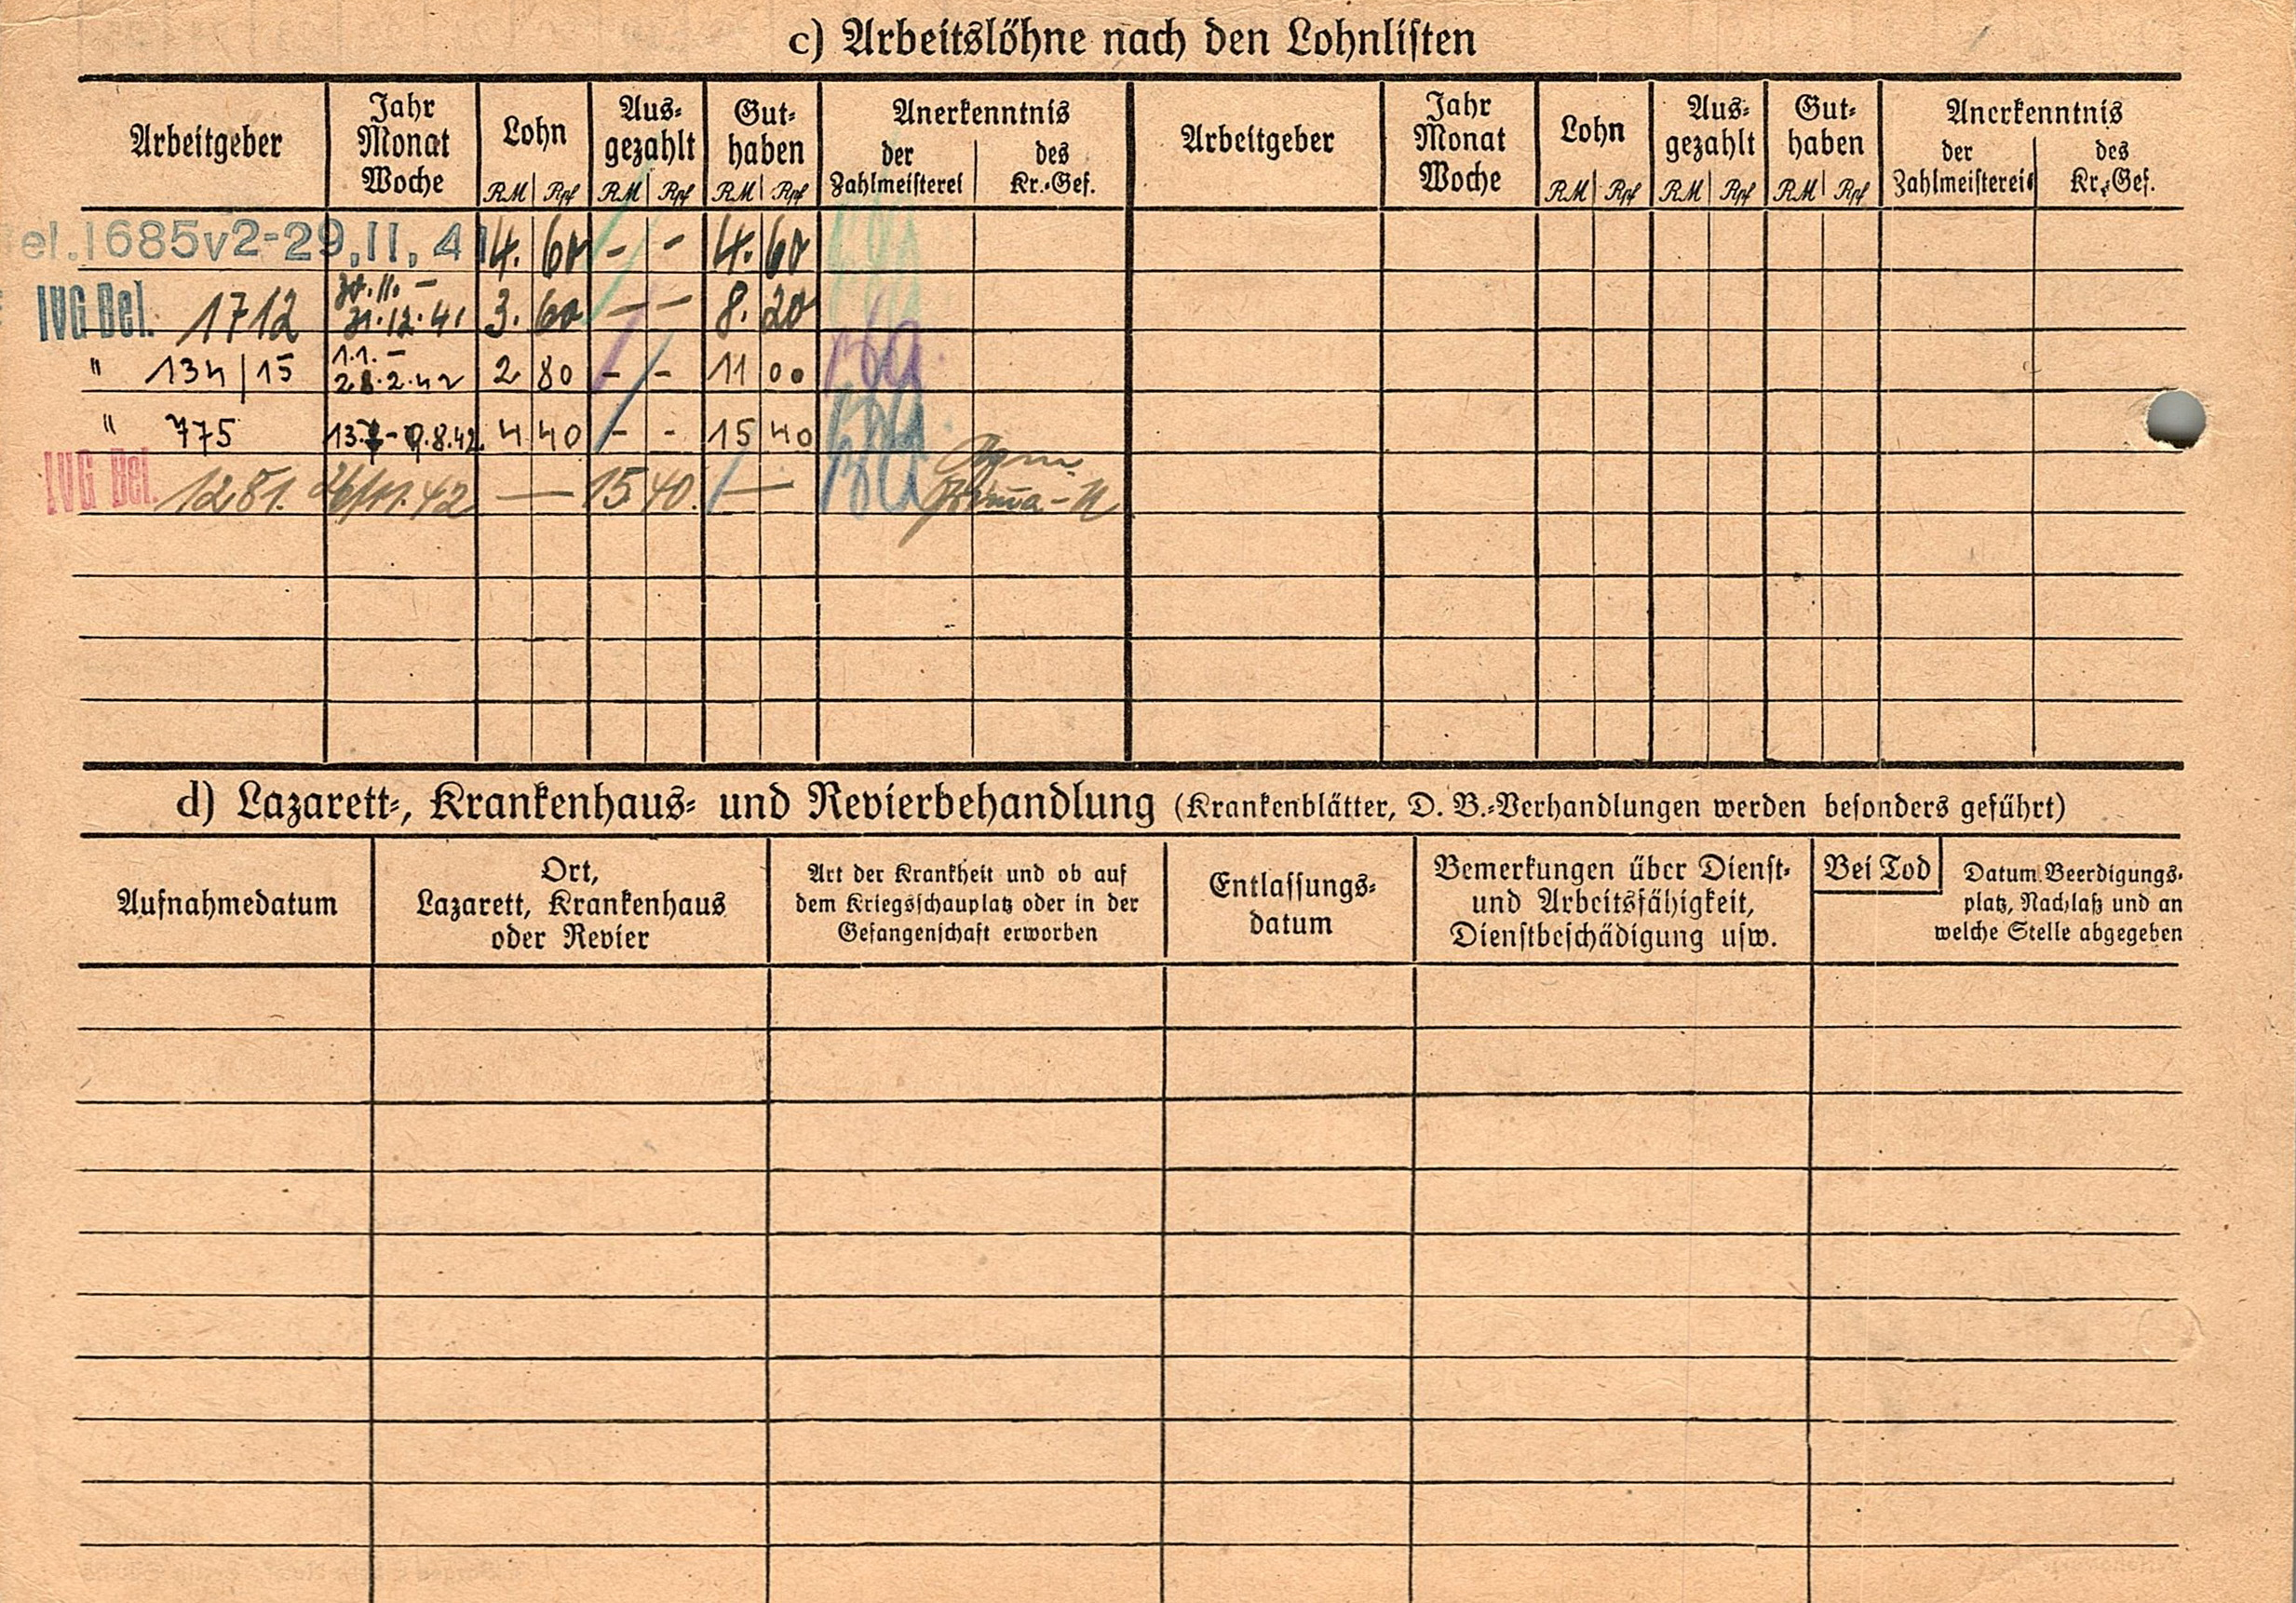 c) Arbeitslöhne nach den Lohnlisten
Arbeitgeber
Jahr
Monat
Woche
Lohn
RM Rpf
Aus-
gezahlt
RM Rpf
Gut-
haben
RM Rpf
Anerkenntnis
der
Zahlmeisterei
des
Kr.-Gef.
Arbeitgeber
Jahr
Monat
Woche
Lohn
RM Rpf
Aus-
gezahlt
RM Rpf
Gut-
haben
RM Rpf
Anerkenntnis
der
Zahlmeisterei
des
Kr.-Gef.
el.1685v2-29.11.41 4. 60 - - 4. 60
IVG Bel. 1712 30.11. - 31.12.41 3. 60 - - 8. 20
" 134/15 1.1. - 28.2.42 2 80 - - 11 00
" 775 4 40 - - 15 40
IVG Bel. 1281. 42 — 15 40. —
d) Lazarett-, Krankenhaus- und Revierbehandlung (Krankenblätter, D. B.-Verhandlungen werden besonders geführt)
Aufnahmedatum
Ort,
Lazarett, Krankenhaus
oder Revier
Art der Krankheit und ob auf
dem Kriegsschauplatz oder in der
Gefangenschaft erworben
Entlassungs-
datum
Bemerkungen über Dienst-
und Arbeitsfähigkeit,
Dienstbeschädigung usw.
Bei Tod
Datum. Beerdigungs-
platz, Nachlaß und an
welche Stelle abgegeben